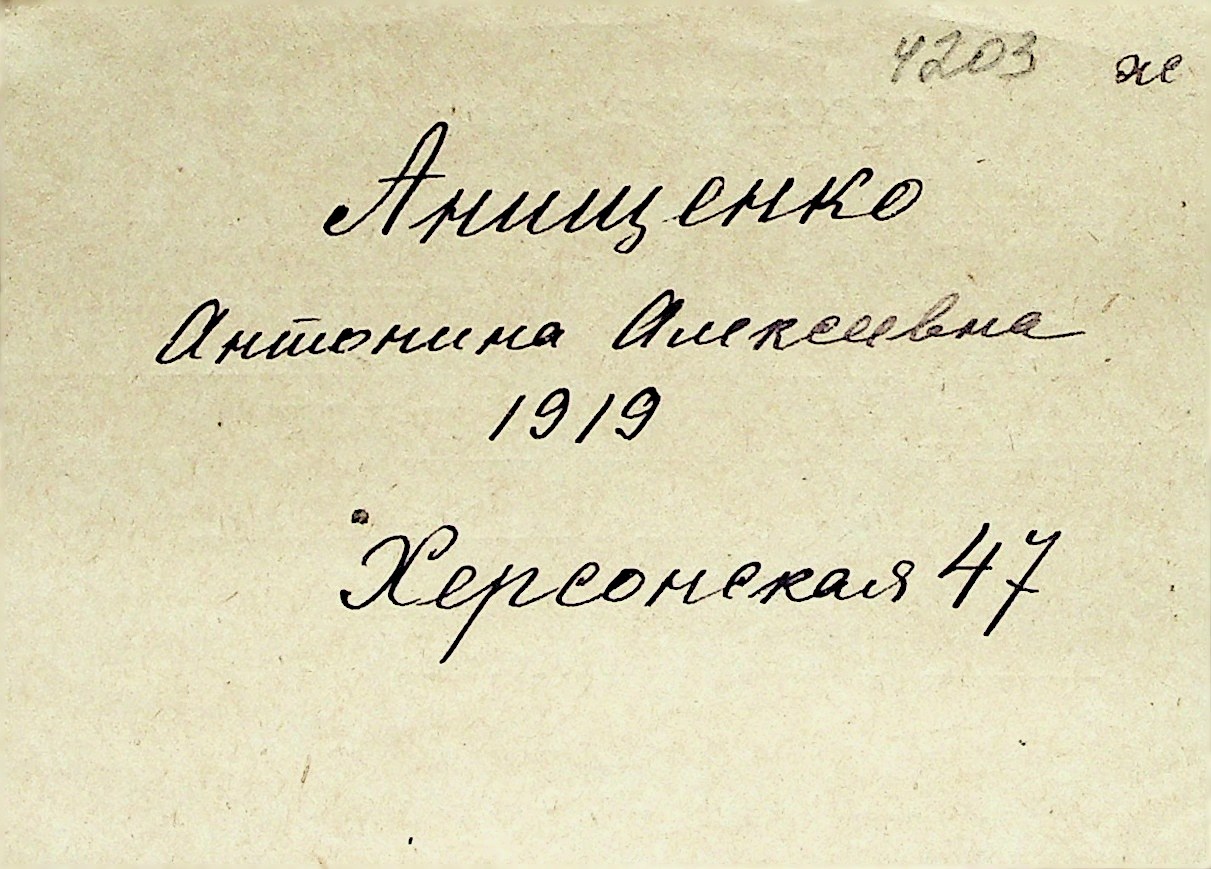 4203 ж
Анищенко
Антонина Алексеевна
1919
Херсонская 47